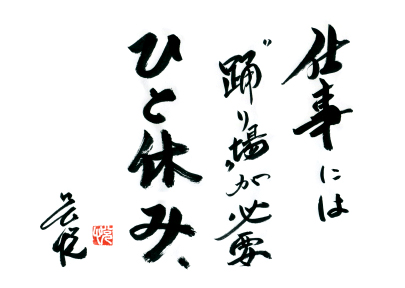 仕事には
"踊り場"が必要
ひと休み、
芸悦